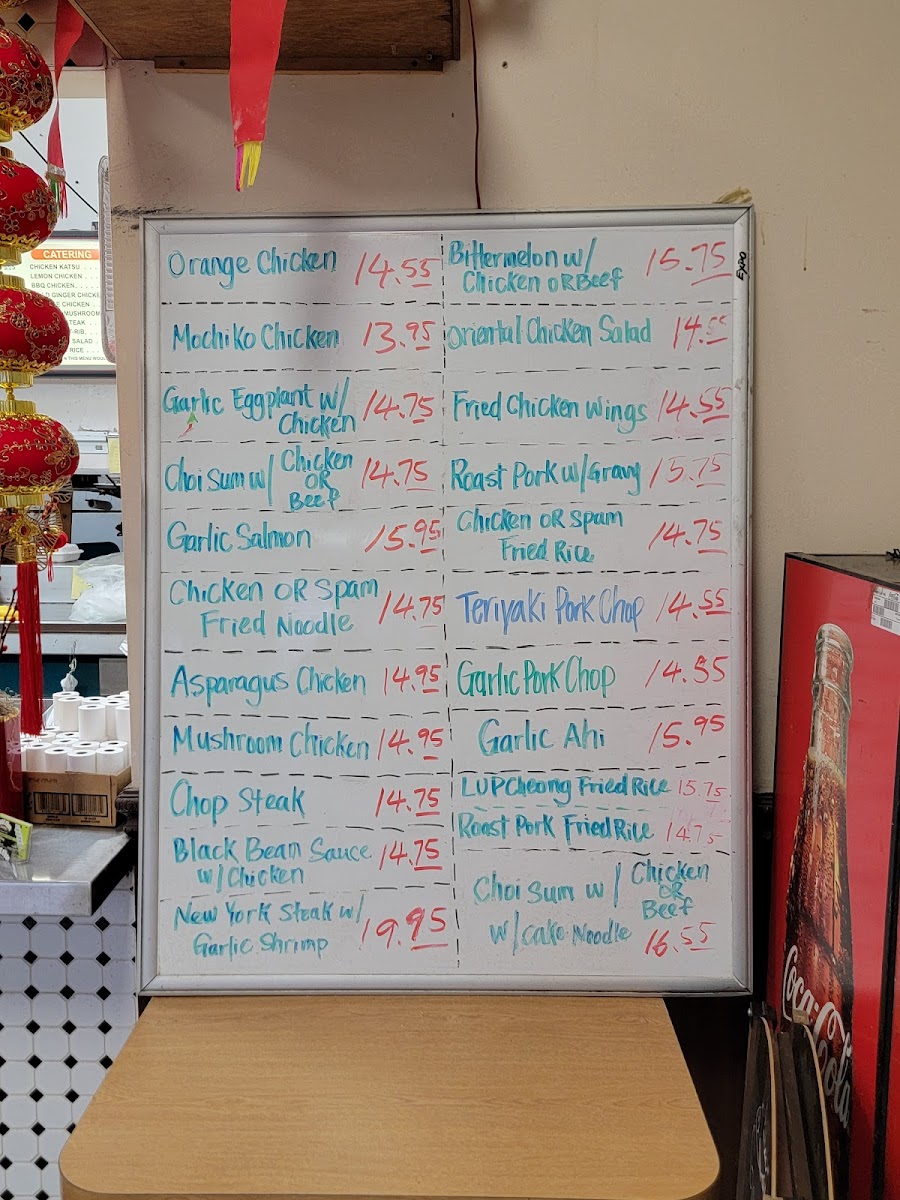 CATERING
CHICKEN KATSU
LEMON CHICKEN
BBQ CHICKEN
GINGER CHICKEN
CHICKEN
MUSHROOM
SALAD
RICE
Orange Chicken 14.55
Mochiko Chicken 13.95
Garlic Eggplant w/
Chicken 14.75
Choi Sum w/ Chicken
OR
Beef 14.75
Garlic Salmon 15.95
Chicken OR Spam
Fried Noodle 14.75
Asparagus Chicken 14.95
Mushroom Chicken 14.95
Chop Steak 14.75
Black Bean Sauce
w/Chicken 14.75
New York Steak w/
Garlic Shrimp 19.95
Bittermelon w/
Chicken OR Beef 15.75
Oriental Chicken Salad 14.55
Fried Chicken Wings 14.55
Roast Pork w/Gravy 15.75
Chicken OR Spam
Fried Rice 14.75
Teriyaki Pork Chop 14.55
Garlic Pork Chop 14.55
Garlic Ahi 15.95
LUP Cheong Fried Rice 15.75
Roast Pork Fried Rice 14.75
Choi Sum w/ Chicken
OR
Beef
w/cake Noodle 16.55
Expo
Coca-Cola